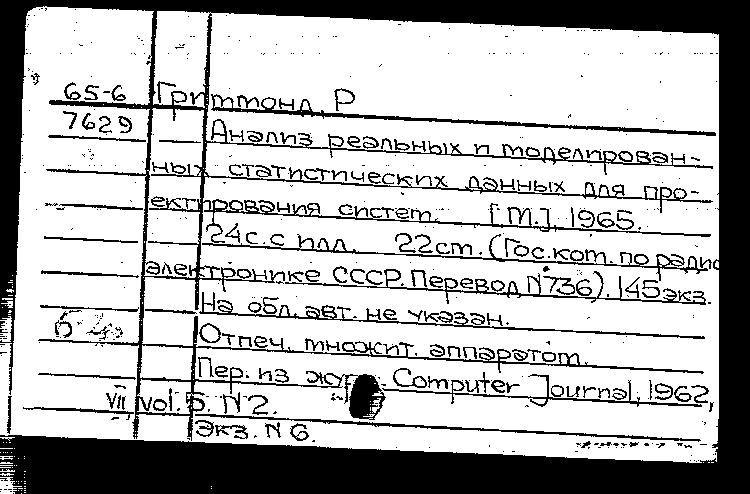 65-6 Гриммонд, Р
7629 Анализ реальных и моделирован-
ных статистических данных для про-
ектирования систем. [М.], 1965.
24с. с илл. 22см. (Гос. ком. по радио
электронике СССР. Перевод N°736). 145 экз.
На обл. авт. не указан.
Отпеч. множит. аппаратом.
Пер. из журн. Computer Journal, 1962,
VII, vol. 5. N 2.
Экз. N 6.